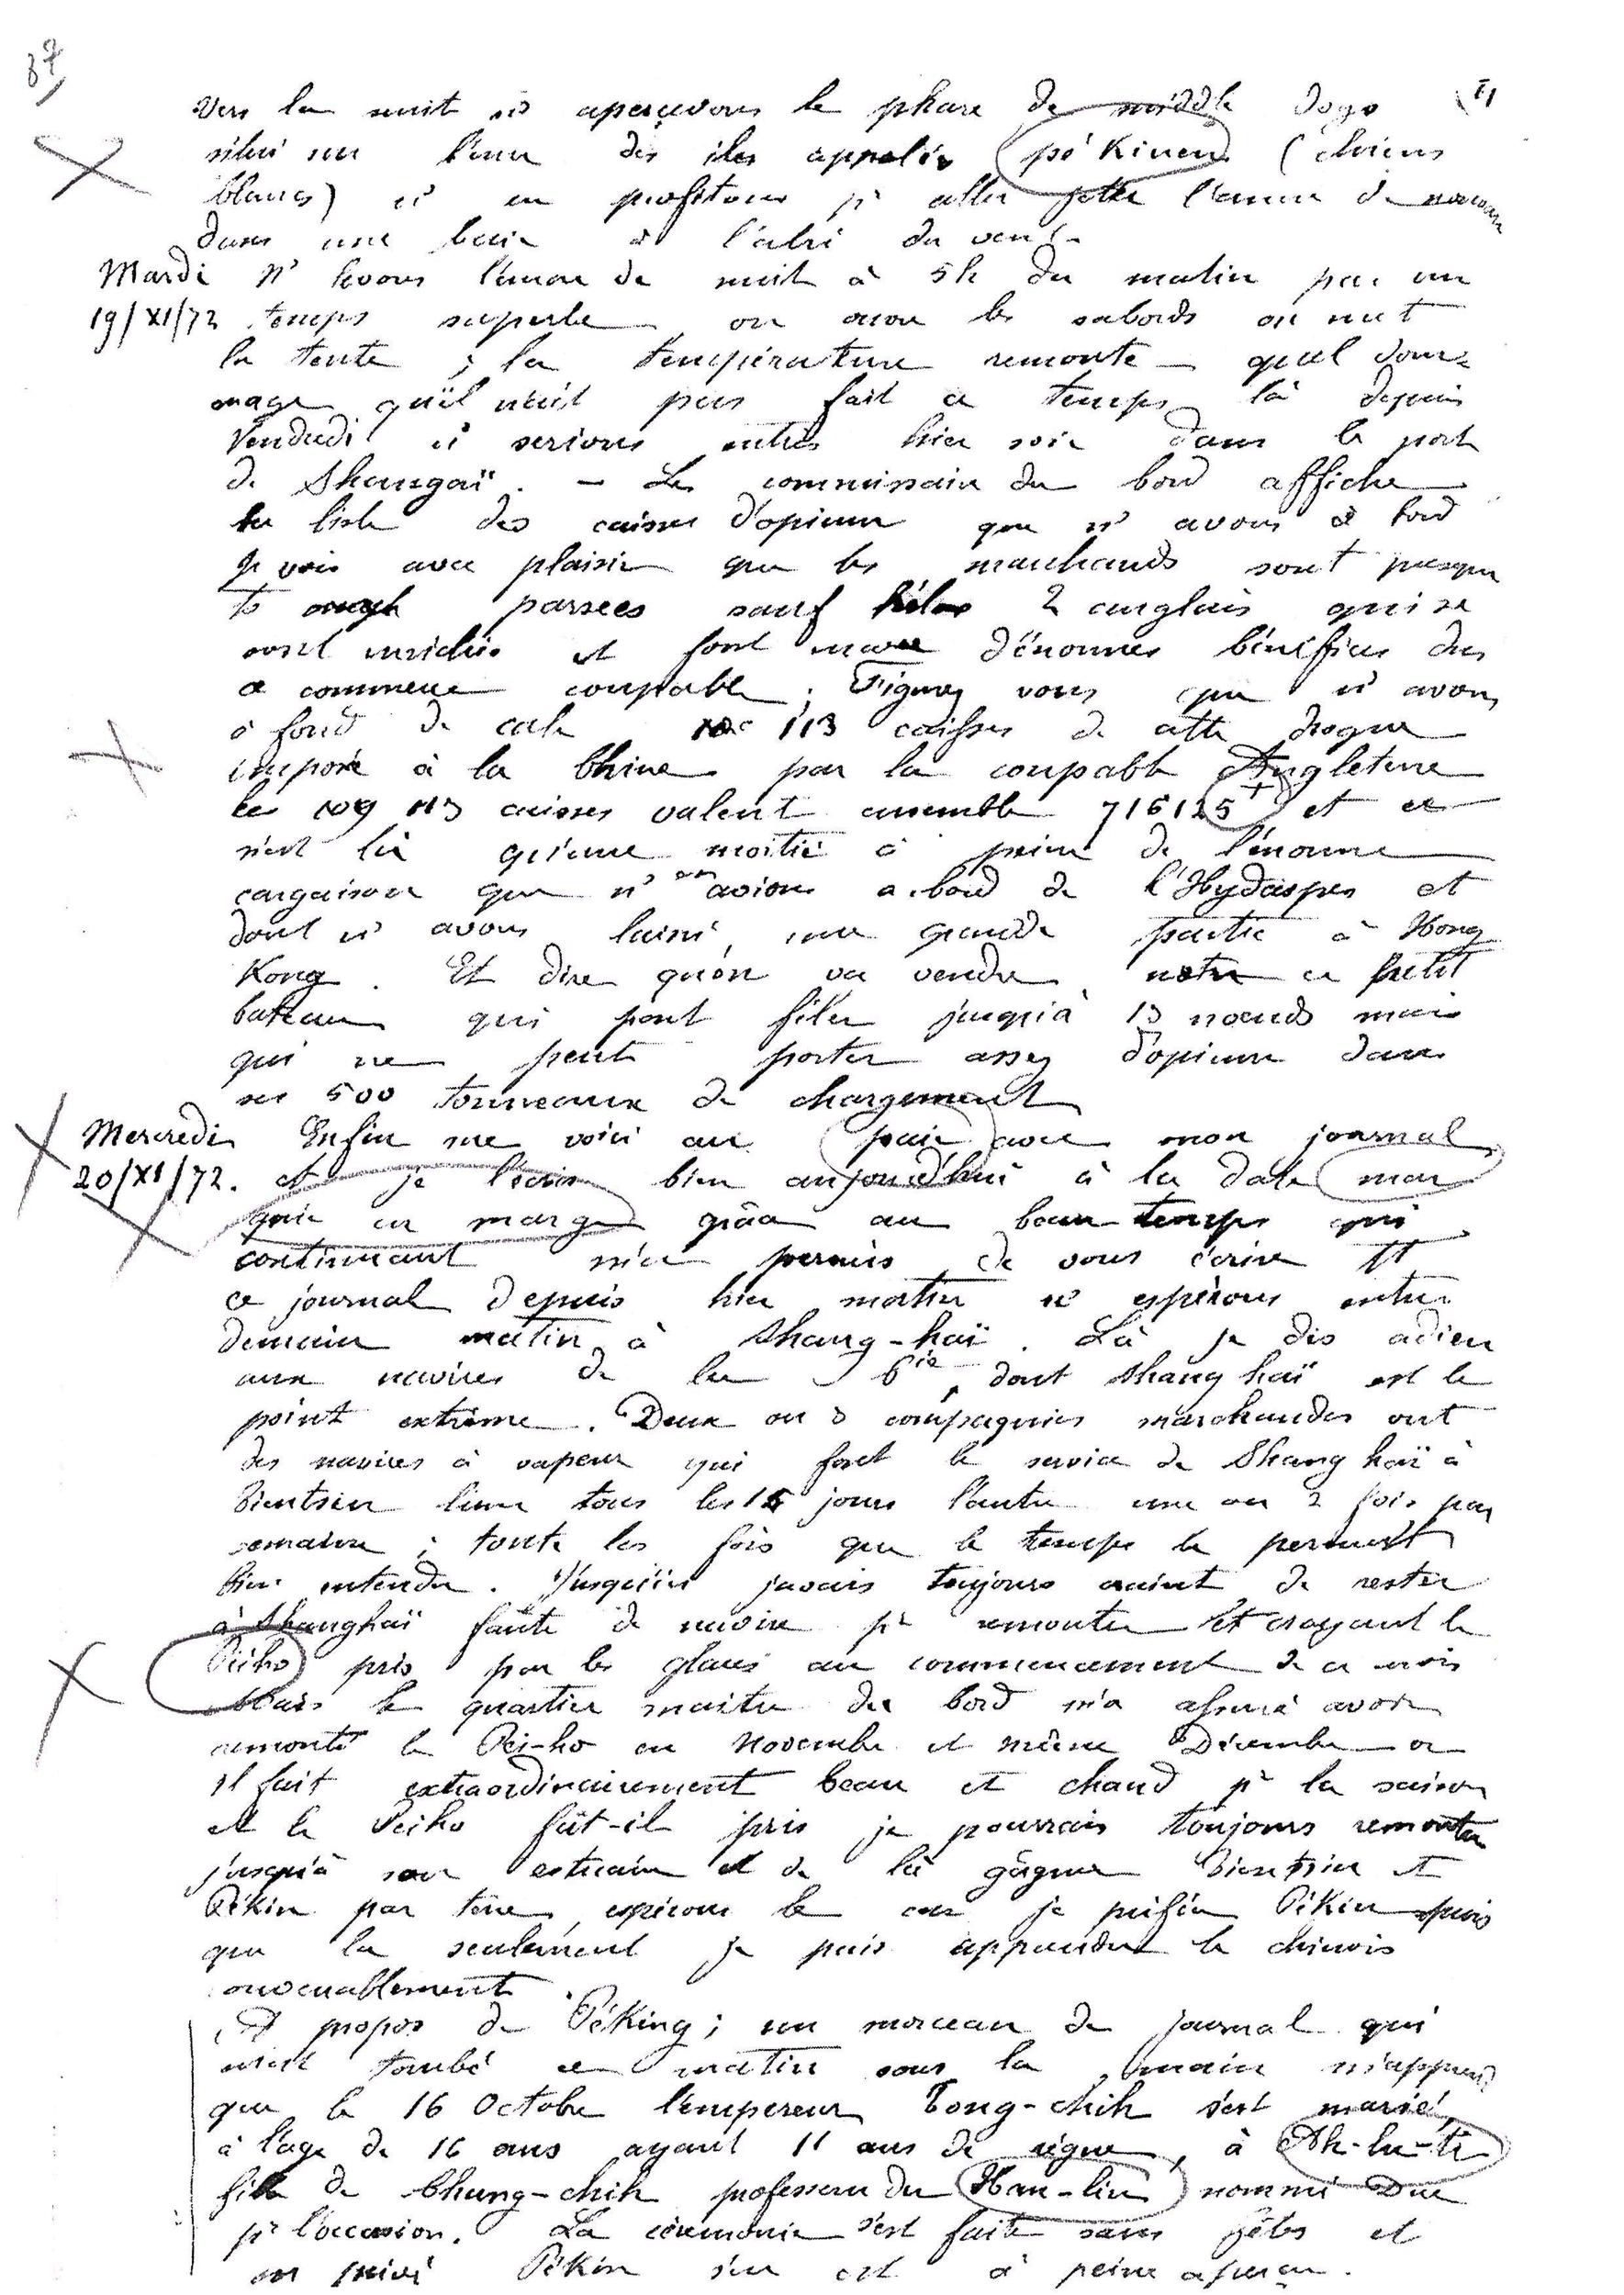 87
Vers la nuit ns apercevons le phare de middle dogs
situé sur l'une des iles appelées pé Kiuen (chiens
blancs) ns en profitons pr aller jetter l'ancre de nouveau
dans une baie à l'abri du vent -
Mardi ns levons l'ancre de nuit à 5h du matin par un
19/XI/72 temps superbe on ouvre les sabords on met
la tente ; la température remonte - quel dom-
mage qu'il n'ait pas fait ce temps là depuis
Vendredi ns serions entrés hier soir dans le port
de Shangaï. - Le commissaire du bord affiche
la liste des caisses d'opium que ns avons à bord
Je vois avec plaisir que les marchands sont presque
ts parsees sauf hélas 2 anglais qui se
sont enrichis et font d'énormes bénéfices ds
ce commerce coupable. Figurez vous que ns avons
à fond de cale 113 caisses de cette drogue
imposée à la Chine par la coupable Angleterre
les 109 113 caisses valent ensemble 716125 et ce
n'est là qu'une moitié à peine de l'énorme
cargaison que ns avions a bord de l'Hydaspes et
dont ns avons laissé une grande partie à Hong
Kong. Et dire qu'on va vendre notre ce petit
bateau qui peut filer jusqu'à 13 noeuds mais
qui ne peut porter assez d'opium dans
ses 500 tonneaux de chargement
Mercredi Enfin me voici au pair avec mon journal
20/XI/72. et je l'écris bien aujourd'hui à la date mar
quée en marge grâce au beau temps qui
continuant m'a permis de vous écrire tt
ce journal depuis hier matin ns espérons entrer
demain matin à Shang-haï. Là je dis adieu
aux navires de la Cie, dont Shang haï est le
point extrême. Deux ou 3 compagnies marchandes ont
des navires à vapeur qui font le service de Shang haï à
Tientsin l'une tous les 15 jours l'autre une ou 2 fois par
semaine ; toute les fois que le temps le permet
bien entendu. Jusqu'ici javais toujours craint de rester
à Shanghaï faute de navire pr remonter et croyant le
Peïho pris par les glaces au commencement de ce mois
Mais le quartier maitre du bord m'a assuré avoir
remonté le Peï-ho en Novembre et même Décembre or
il fait extraordinairement beau et chaud pr la saison
et le Peiho fût-il pris je pourrais toujours remonter
jusqu'à son estuaire et de là gâgner Tientsin et
Pékin par terre, espérons le car je préfère Pékin puis
que la seulement je puis apprendre le chinois
convenablement
A propos de Péking ; un morceau de journal qui
m'est tombé ce matin sous la main m'apprend
que le 16 Octobre l'empereur Tong-chih s'est marié,
à l'age de 16 ans ayant 11 ans de règne, à Ah-lu-te
fille de Chung-chih professeur du Han-lin nommé Duc
pr l'occasion. La cérémonie s'est faite sans fêtes et
en privé Pékin s'en est à peine aperçu.